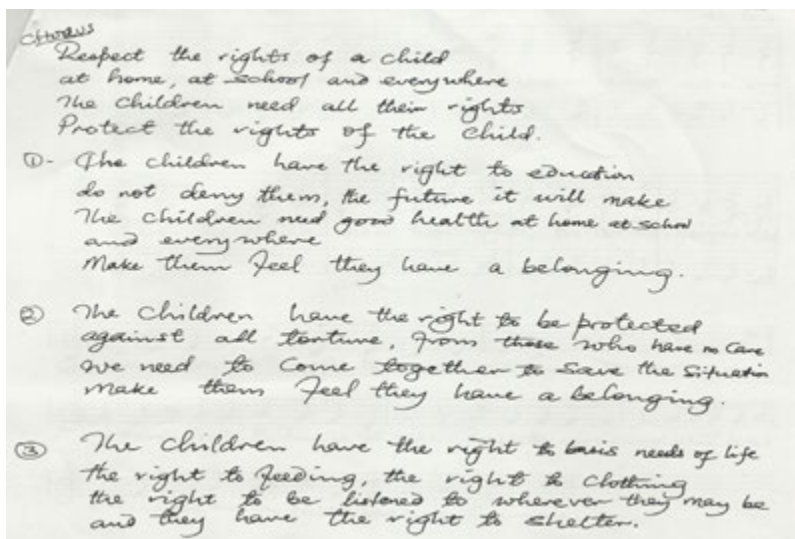 Chorus
Respect the rights of a child
at home, at school and everywhere
The children need all their rights
Protect the rights of the child.
①- The children have the right to education
do not deny them, the future it will make
The children need good health at home at school
and everywhere
Make them feel they have a belonging.
② The children have the right to be protected
against all torture, from those who have no care
we need to come together to save the situation
make them feel they have a belonging.
③ The children have the right to basis needs of life
the right to feeding, the right to clothing
the right to be listened to wherever they may be
and they have the right to shelter.